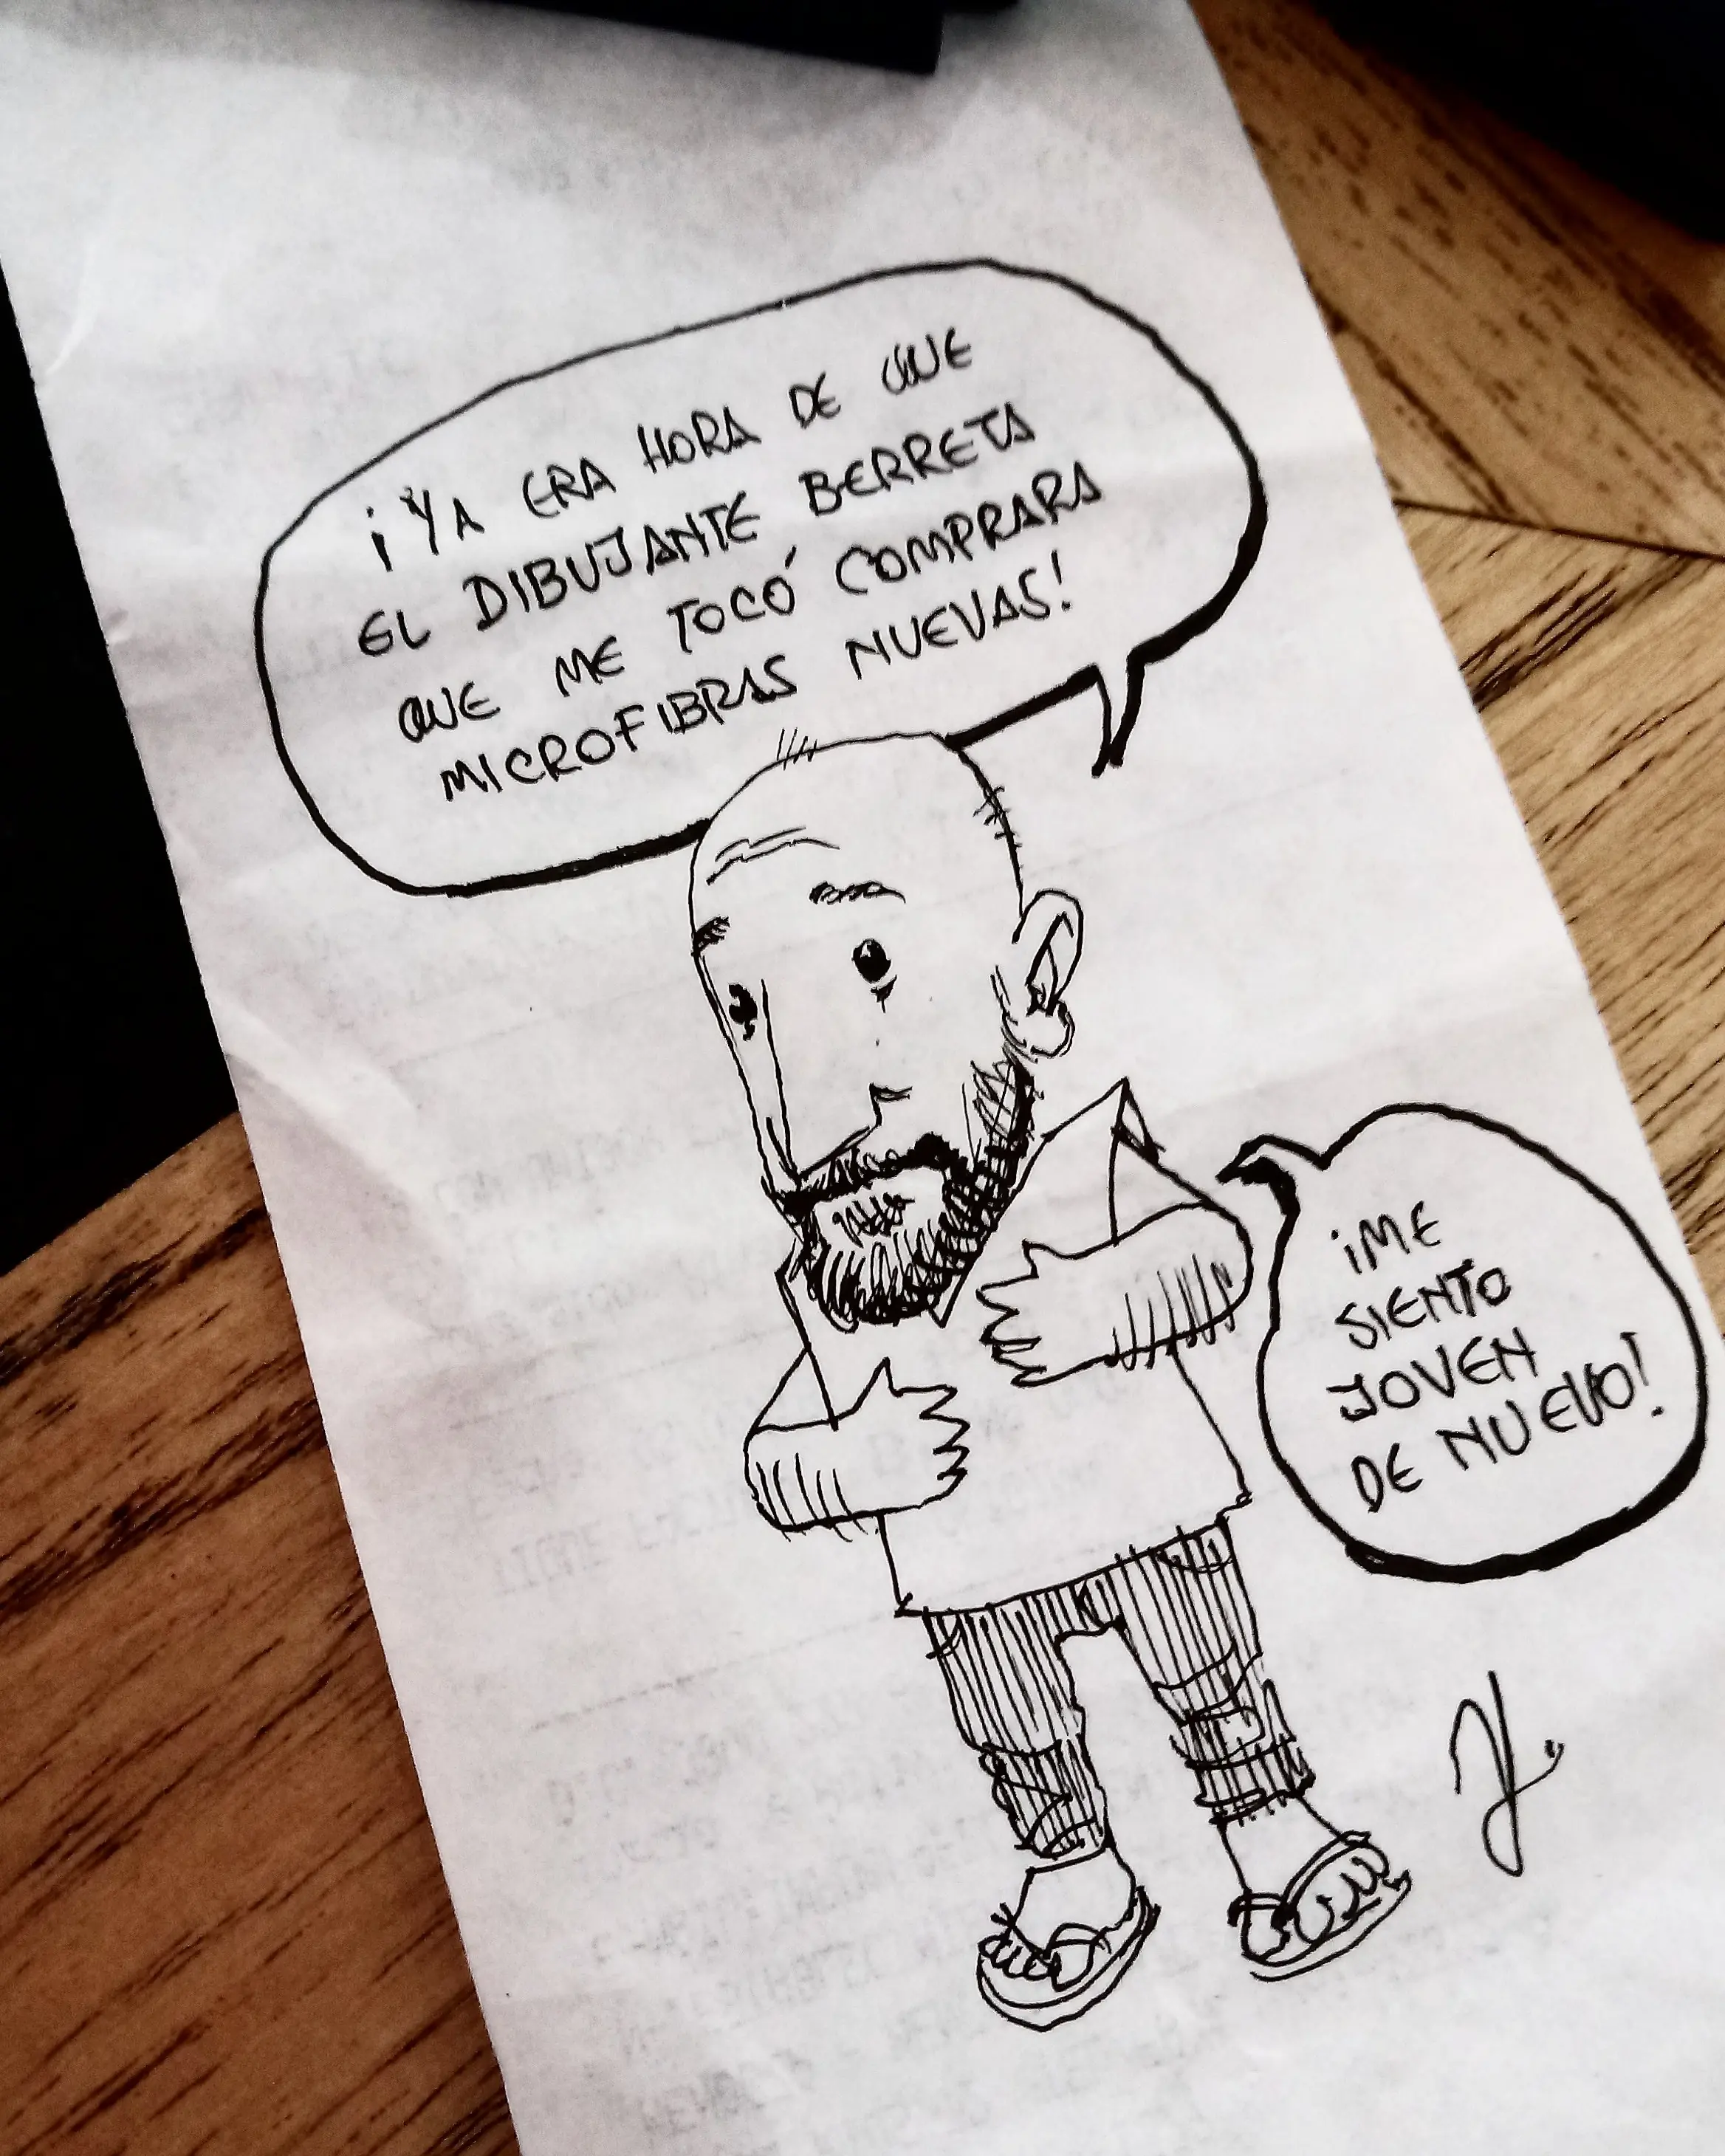 ¡YA ERA HORA DE QUE
EL DIBUJANTE BERRETA
QUE ME TOCÓ COMPRARA
MICROFIBRAS NUEVAS!
¡ME
SIENTO
JOVEN
DE NUEVO!